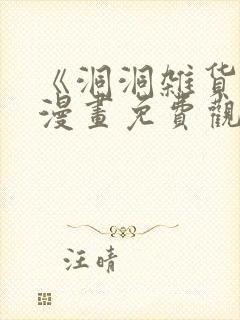 《洞洞雑货
漫畫免費觀
汪晴